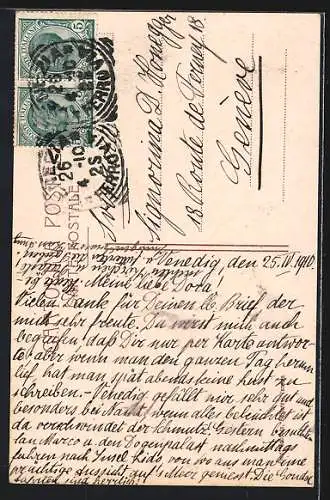 POSTE ITALIANE
POSTALE
VENEZIA
FERROVIA
26
4-10
2S
Svizzera
Signorina D. Honegger
18 Route de Ferney 18
Genève
Venedig, den 25.IV.1910.
Meine liebe Dora!
Vielen Dank für Deinen lb. Brief der
mich sehr freute. Du wirst mich auch
begreifen, daß Dir nur per Karte antwor-
te aber wenn man den ganzen Tag herum
lief, hat man spät abends keine Lust zu
schreiben. Venedig gefällt mir sehr gut und
besonders bei Nacht, wenn alles beleuchtet ist
da verschwindet der Schmutz. Gestern
San Marco u. den Dogenpalast nachmittag
fuhren nach Insel Lido, von wo aus man eine
prächtige Aussicht auf's Meer geniest. Die Gondel
fahrten sind herrlich!